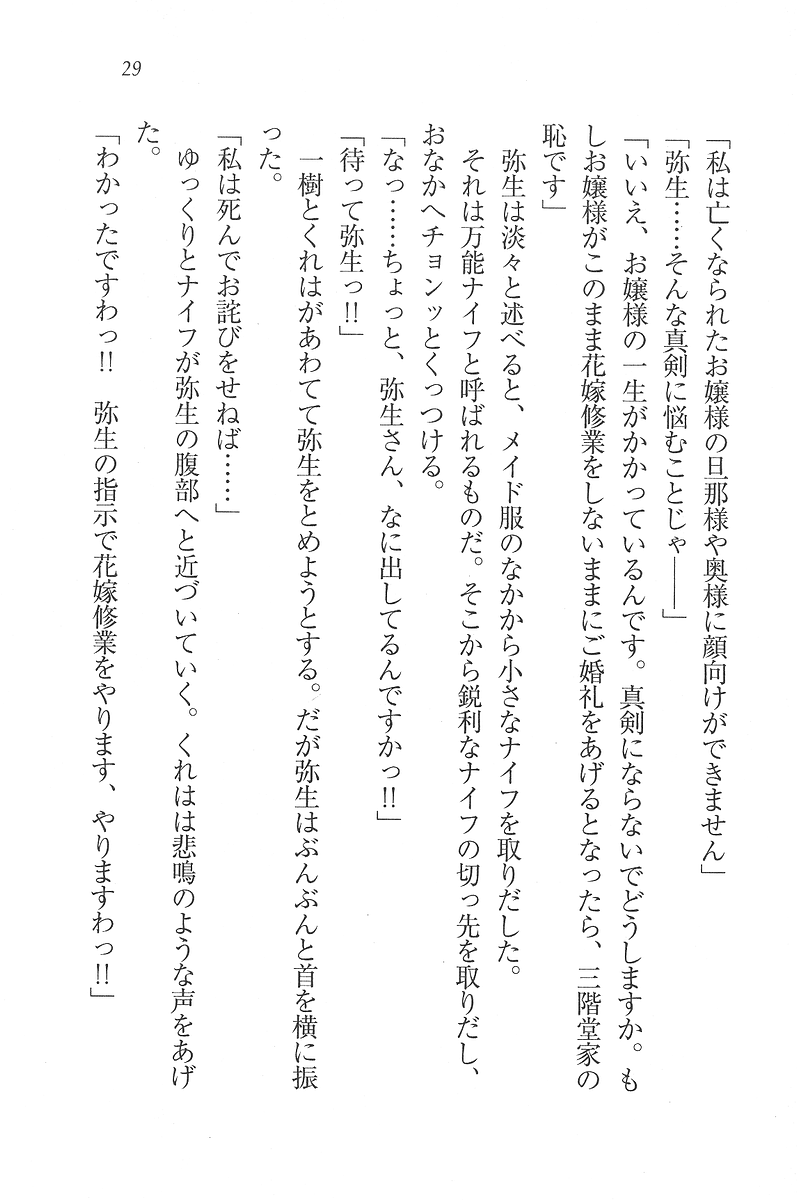 29
「私は亡くなられたお嬢様の旦那様や奥様に顔向けができません」
「弥生……そんな真剣に悩むことじゃ――」
「いいえ、お嬢様の一生がかかっているんです。真剣にならないでどうしますか。も
しお嬢様がこのまま花嫁修業をしないままにご婚礼をあげるとなったら、三階堂家の
恥です」
　弥生は淡々と述べると、メイド服のなかから小さなナイフを取りだした。
　それは万能ナイフと呼ばれるものだ。そこから鋭利なナイフの切っ先を取りだし、
おなかへチョンッとくっつける。
「なっ……ちょっと、弥生さん、なに出してるんですかっ!!」
「待って弥生っ!!」
　一樹とくれはがあわてて弥生をとめようとする。だが弥生はぶんぶんと首を横に振
った。
「私は死んでお詫びをせねば……」
　ゆっくりとナイフが弥生の腹部へと近づいていく。くれはは悲鳴のような声をあげ
た。
「わかったですわっ!!　弥生の指示で花嫁修業をやります、やりますわっ!!」